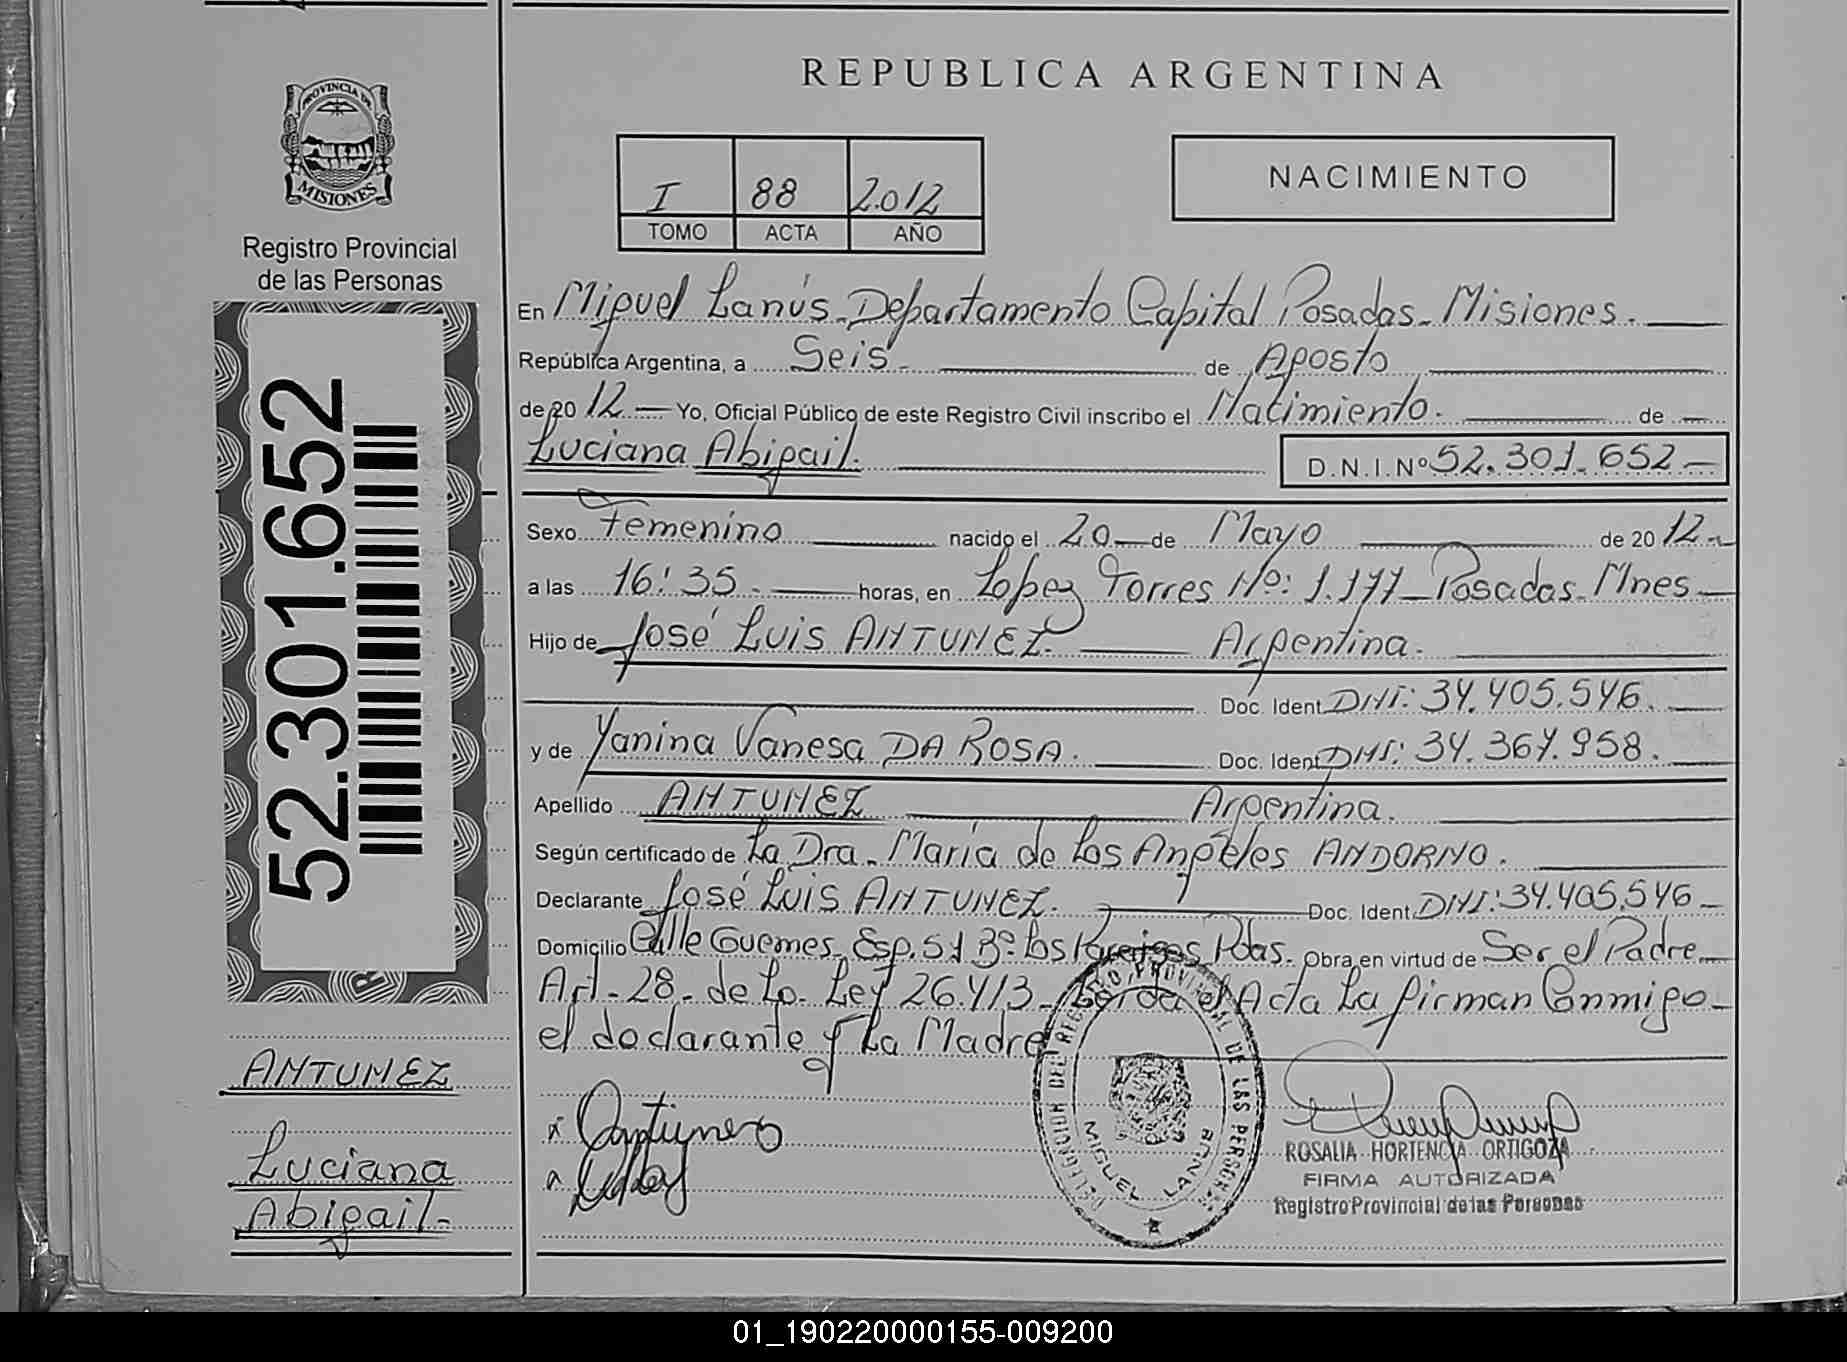 REPUBLICA ARGENTINA
PROVINCIA DE
MISIONES
Registro Provincial
de las Personas
I 88 2.012
TOMO ACTA AÑO
NACIMIENTO
En Miguel Lanús-Departamento Capital Posadas-Misiones.
República Argentina, a Seis- de Agosto
de 2012 Yo, Oficial Público de este Registro Civil inscribo el Nacimiento. de
Luciana Abigail. D.N.I.Nº 52.301.652-
Sexo Femenino nacido el 20 de Mayo de 2012-
a las 16:35- horas, en López Torres Nº: 1.177-Posadas-Mnes-
Hijo de José Luis ANTUNEZ. Argentina.
Doc. Ident. DNI: 34.405.546.
y de Yanina Vanesa DA ROSA. Doc. Ident. DNI: 34.367.958.
Apellido ANTUNEZ Argentina.
Según certificado de La Dra. María de Los Angeles ANDORNO.
Declarante José Luis ANTUNEZ. Doc. Ident. DNI: 34.405.546-
Domicilio Calle Guemes Esp. 51 Bº Los Pdas. Obra en virtud de Ser el Padre
Art-28-de La-Ley 26.413- el Acta La firman Conmigo-
el declarante y La Madre
52.301.652
ANTUNEZ
Luciana
Abigail-
x Antunez
DELEGACION DEL REGISTRO PROVINCIAL DE LAS PERSONAS
MIGUEL LANUS
ROSALIA HORTENCIA ORTIGOZA
FIRMA AUTORIZADA
Registro Provincial de las Personas
01_190220000155-009200